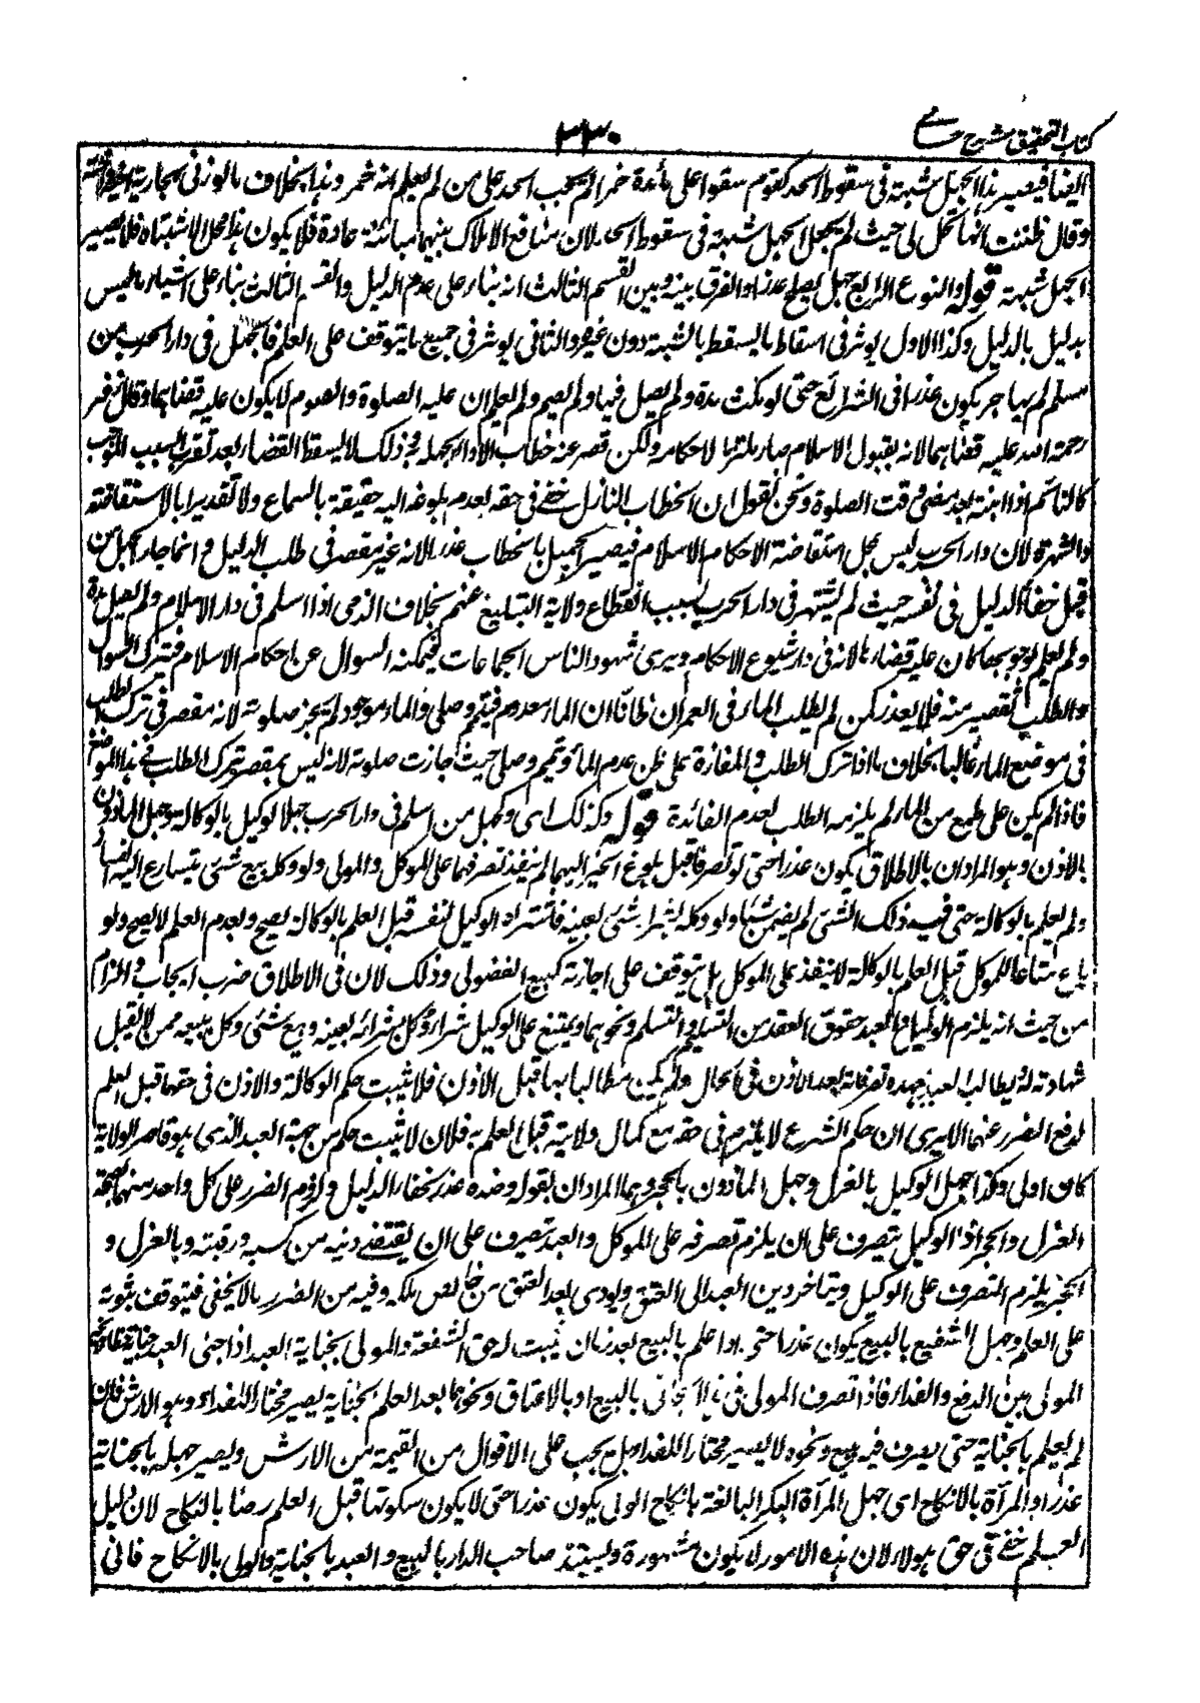 كتاب التحقيق شرح حسامى
٣٣٠
ايضا فيصير هذا الجهل شبهة فى سقوط الحد كقوم سقوا على مائدة خمرا لم يجب الحد على من لم يعلم انه خمر وهذا بخلاف ما لو زنى بجارية اخيه او اخته
وقال ظننت انها تحل لى حيث لم يجعل الجهل شبهة فى سقوط الحد لان منافع الاملاك بينهما مباينة عادة فلا يكون هذا محل الاشتباه فلا يصير
الجهل شبهة قوله والنوع الرابع جهل يصلح عذرا والفرق بينه وبين القسم الثالث انه بناء على عدم الدليل والقسم الثالث بناء على اشتباه ما ليس
بدليل بالدليل وكذا الاول يوثر فى اسقاط ما يسقط بالشبهة دون غيره والثانى يوثر فى جميع ما يتوقف على العلم فالجهل فى دار الحرب من
مسلم لم يهاجر يكون عذرا فى الشرائع حتى لو مكث مدة ولم يصل فيها ولم يصم ولم يعلم ان عليه الصلوة والصوم لا يكون عليه قضاؤهما وقال زفر
رحمة الله عليه قضاؤهما لانه بقبول الاسلام صار ملتزما لاحكامه ولكن قصر عنه خطاب الاداء لجهله به وذلك لا يسقط القضاء بعد تقرر السبب الموجب
كالنائم اذا انتبه بعد مضى وقت الصلوة ونحن نقول ان الخطاب النازل خفى فى حقه لعدم بلوغه اليه حقيقة بالسماع ولا تقديرا بالاستفاضة
والشهرة لان دار الحرب ليس بمحل استفاضة الاحكام الاسلام فيصير الجهل بالخطاب عذرا لانه غير مقصر فى طلب الدليل وانما جاء الجهل من
قبل خفاء الدليل فى نفسه حيث لم يشتهر فى دار الحرب بسبب انقطاع ولاية التبليغ عنهم بخلاف الذمى اذا اسلم فى دار الاسلام ولم يصل مدة
ولم يعلم وجوبها كان عليه قضاؤها لانه فى دار شيوع الاحكام ويرى شهود الناس الجماعات فيمكنه السوال عن احكام الاسلام فترك السوال
والطلب تقصير منه فلا يعذر كمن لم يطلب الماء فى العمران ظانا ان الماء معدوم فتيمم وصلى والماء موجود لم يجز صلوته لانه مقصر فى ترك الطلب
فى موضع الماء غالبا بخلاف ما اذا ترك الطلب فى المفازة على ظن عدم الماء وتيمم وصلى حيث جازت صلوته لانه ليس بمقصر بترك الطلب فى هذا الموضع
فاذا لم يكن على طمع من الماء لم يلزمه الطلب لعدم الفائدة قوله وكذلك اى وكجهل من اسلم فى دار الحرب جهل الوكيل بالوكالة وجهل الماذون
بالاذن وهو المراد ان بالاطلاق يكون عذرا حتى لو تصرفا قبل بلوغ الخبر اليهما لم ينفذ تصرفهما على الموكل والمولى ولو وكله ببيع شئ يتسارع اليه الفساد
ولم يعلم بالوكالة حتى فسد ذلك الشئ لم يضمن شيئا ولو وكله بشراء شئ بعينه فاشتراه الوكيل لنفسه قبل العلم بالوكالة يصح وبعدم العلم لا يصح ولو
باع متاعا للموكل قبل العلم بالوكالة لا ينفذ على الموكل بل يتوقف على اجازته كبيع الفضولى وذلك لان فى الاطلاق ضرب ايجاب والزام
من حيث انه يلزم الوكيل والعبد حقوق العقد من التسليم والتسلم ونحوهما ويمتنع على الوكيل شراء ما وكل بشرائه بعينه وبيع شئ وكل ببيعه ممن لا تقبل
شهادته له ويطالب العبد بعهدة تصرفاته بعد الاذن فى الحال ولم يكن مطالبا بها قبل الاذن فلا يثبت حكم الوكالة والاذن فى حقهما قبل العلم
لدفع الضرر عنهما الا يرى ان حكم الشرع لا يلزم فى حقه مع كمال ولايته قبل العلم به فلان لا يثبت حكم من جهة العبد الذى هو قاصر الولاية
كان اولى وكذا جهل الوكيل بالعزل وجهل الماذون بالحجر وهما المرادان بقوله وضده عذر لخفاء الدليل ولزوم الضرر على كل واحد منهما بصحة
العزل والحجر اذ الوكيل يتصرف على ان يلزم تصرفه على الموكل والعبد يتصرف على ان يقتضى دينه من كسبه ورقبته وبالعزل و
الحجر يلزم التصرف على الوكيل ويتاخر دين العبد الى العتق ويودى بعد العتق من خالص ملكه وفيه من الضرر ما لا يخفى فيتوقف ثبوته
على العلم وجهل الشفيع بالبيع يكون عذرا حتى اذا علم بالبيع بعد زمان يثبت له حق الشفعة والمولى بجناية العبد اذا جنى العبد جناية خطاء يخير
المولى بين الدفع والفداء فاذا تصرف المولى فى الجانى بالبيع او بالاعتاق ونحوهما بعد العلم بجناية يصير مختارا للفداء وهو الارش فان
لم يعلم بالجناية حتى يصرف فيه ببيع ونحوه لا يصير مختارا للفداء بل يجب على الاقل من القيمة من الارش ويصير جهله بالجناية
عذرا والمرأة بالانكاح اى جهل المرأة البكر البالغة بانكاح الولى يكون عذرا حتى لا يكون سكوتها قبل العلم رضا بالنكاح لان دليل
العلم خفى فى حق هولاء لان هذه الامور لا يكون مشهورة ويستبد صاحب الدار بالبيع والعبد بالجناية والولى بالانكاح فانى